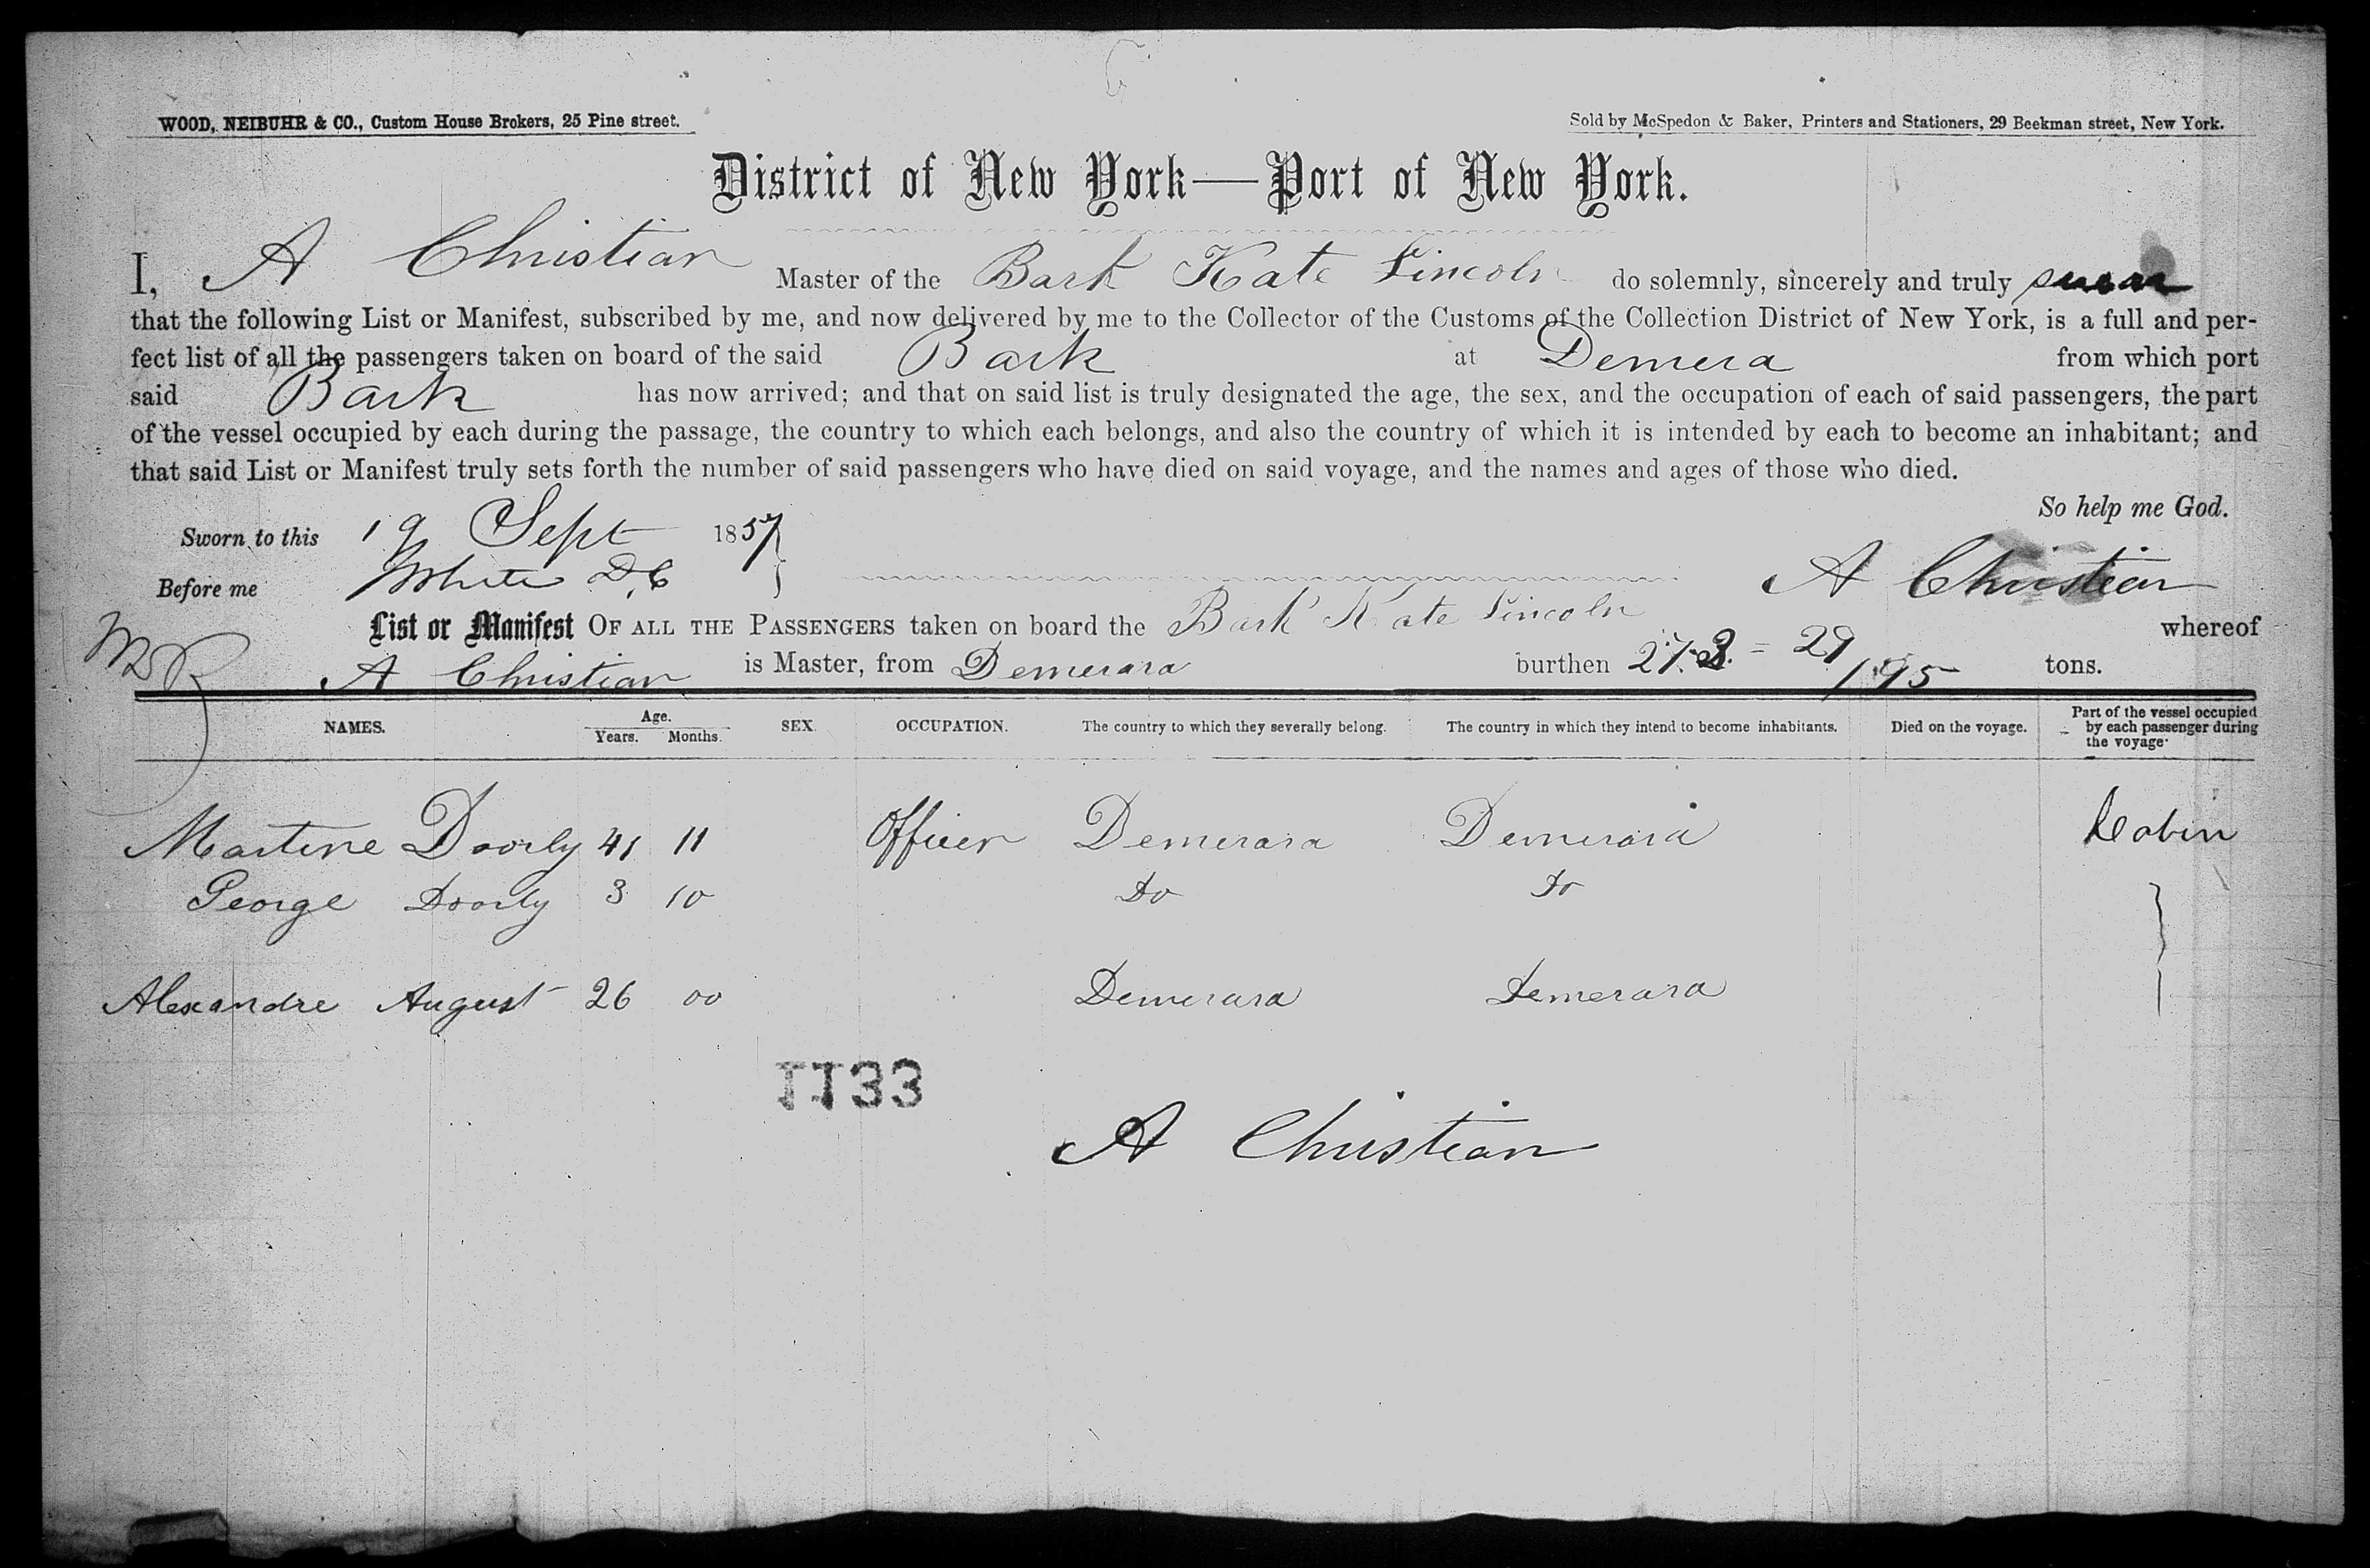 WOOD, NEIBUHR & CO., Custom House Brokers, 25 Pine street.
Sold by McSpedon & Baker, Printers and Stationers, 29 Beekman street, New York.
District of New York—Port of New York.
I, A Christian Master of the Bark Kate Lincoln do solemnly, sincerely and truly swear
that the following List or Manifest, subscribed by me, and now delivered by me to the Collector of the Customs of the Collection District of New York, is a full and per-
fect list of all the passengers taken on board of the said Bark at Demera from which port
said Bark has now arrived; and that on said list is truly designated the age, the sex, and the occupation of each of said passengers, the part
of the vessel occupied by each during the passage, the country to which each belongs, and also the country of which it is intended by each to become an inhabitant; and
that said List or Manifest truly sets forth the number of said passengers who have died on said voyage, and the names and ages of those who died.
So help me God.
Sworn to this 19 Sept 1857
Before me White D,C A Christian
List or Manifest OF ALL THE PASSENGERS taken on board the Bark Kate Lincoln whereof
A Christian is Master, from Demerara burthen tons.
NAMES. Age. Years. Months. SEX. OCCUPATION. The country to which they severally belong. The country in which they intend to become inhabitants. Died on the voyage. Part of the vessel occupied by each passenger during the voyage.
Martine Doorly 41 11 Officer Demerara Demerara Cabin
George Doorly 3 10 do do
Alexandre August 26 00 Demerara Demerara
1133
A Christian